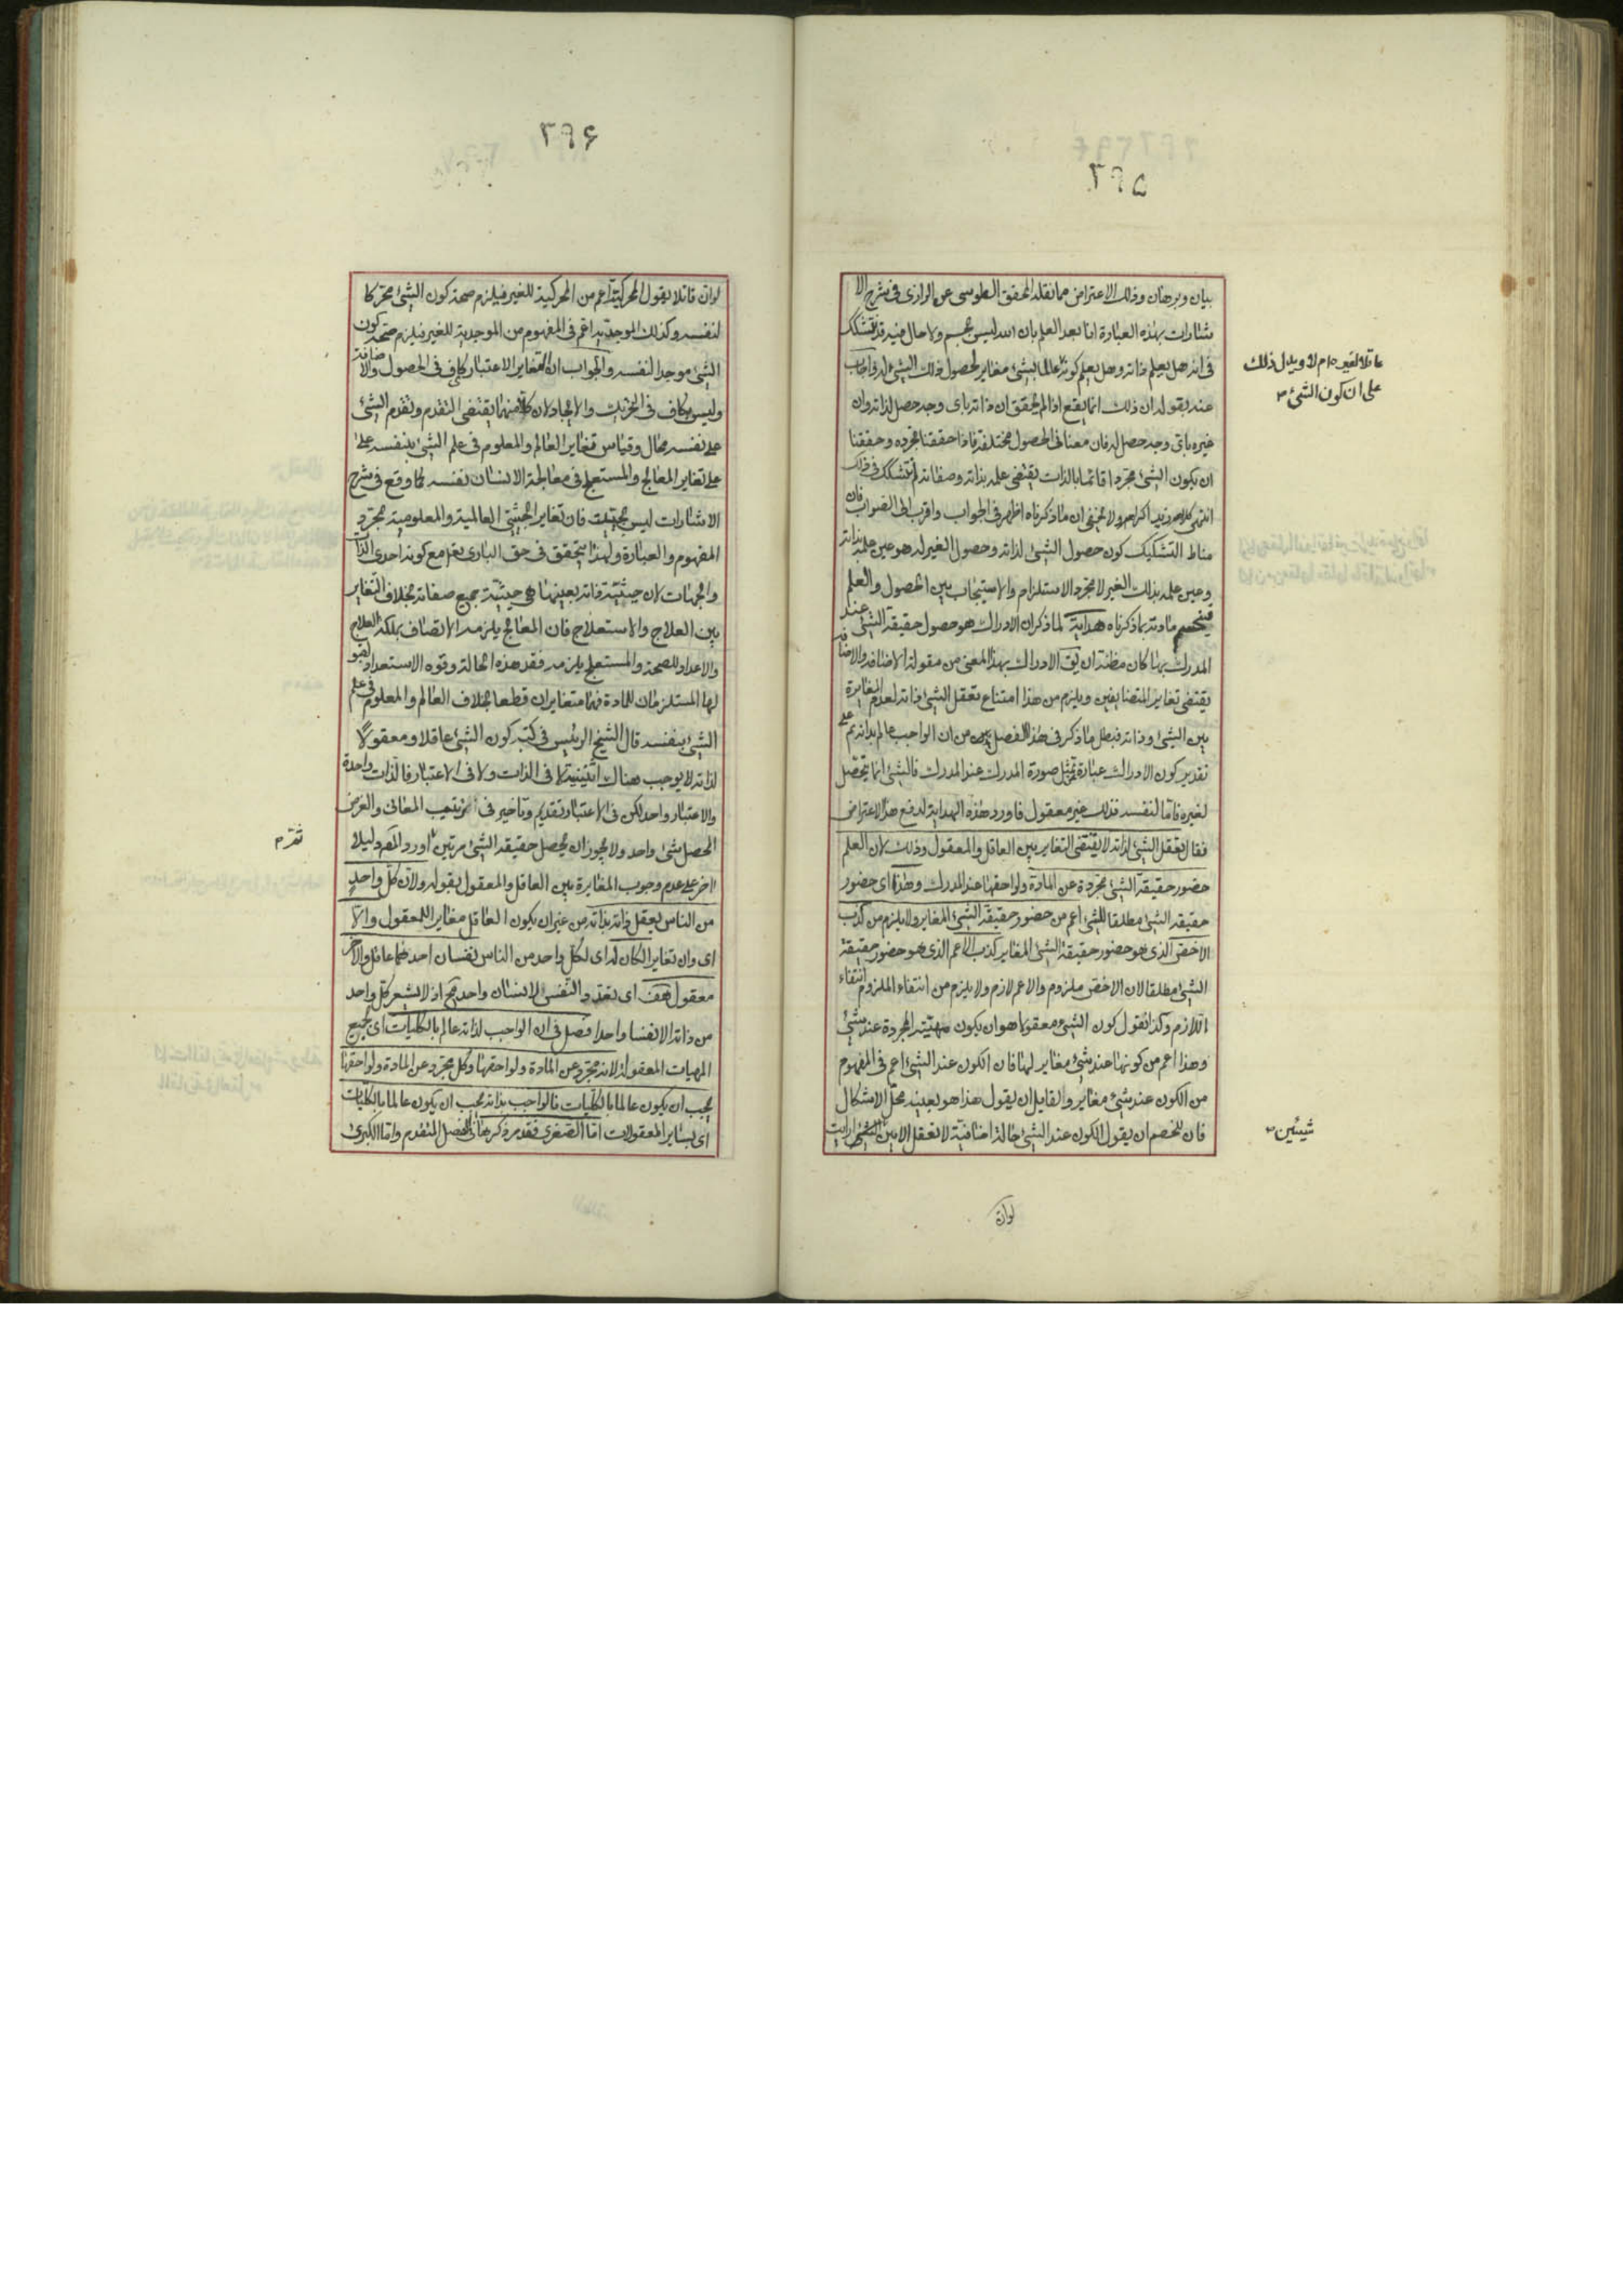 ٢٩٥
بيان وبرهان وذلك الاعتراض مما نقله المحقق الطوسى عن الرازى فى شرح الا
شارات بهذه العبارة انا بعد العلم بان الله ليس بجسم ولا حال فيه قد نتشكك
فى انه هل يعلم ذاته وهل يعلم كونه عالما بشئ مغاير لحصول ذلك الشئ له واجاب
عنه بقوله ان ذلك انما يقع اذا لم يحقق ان ذاته باى وجه حصل لذاته وان
غيره باى وجه حصل له فان معنا فى الحصول مختلفة فاذا حققنا تجرده وحققنا
ان يكون الشئ مجردا قائما بالذات يقتضى علمه بذاته وصفاته لم نتشكك فى ذلك
انتهى كلامه زيد اكرامه ولا يخفى ان ما ذكرناه اظهر فى الجواب واقرب الى الصواب فان
مناط التشكيك كون حصول الشئ لذاته وحصول الغير له هو عين علمه بذاته
وعين علمه بذلك الغير لا مجرد الاستلزام والاستيجاب بين الحصول والعلم
فينحسم مادته بما ذكرناه هداية لما ذكر ان الادراك هو حصول حقيقة الشئ عند
المدرك بها كان مظنة ان يق الادراك بهذا المعنى من مقولة الاضافة والاضا فة
يقتضى تغاير المتضايفين ويلزم من هذا امتناع تعقل الشئ ذاته لعدم المغايرة
بين الشئ وذاته فبطل ما ذكر فى هذا الفصل من ان الواجب عالم بذاته على
تقدير كون الادراك عبارة تمثل صورة المدرك عند المدرك فالشئ انما يتحصل
لغيره فاما لنفسه فذلك غير معقول فاورد هذه الهداية لدفع هذا الاعتراض
فقال تعقل الشئ لذاته لا يقتضى التغاير بين العاقل والمعقول وذلك لان العلم
حضور حقيقة الشئ مجردة عن المادة ولواحقها عند المدرك وهذا اى حضور
حقيقة الشئ مطلقا للشئ اعم من حضور حقيقة الشئ المغاير ولا يلزم من كذب
الاخص الذى هو حضور حقيقة الشئ المغاير كذب الاعم الذى هو حضور حقيقة
الشئ مطلقا لان الاخص ملزوم والاعم لازم ولا يلزم من انتفاء الملزوم انتفاء
اللازم وكذا نقول كون الشئ معقولا هو ان يكون مهيته المجردة عند شئ
وهذا اعم من كونها عند شئ مغاير لها فان الكون عند الشئ اعم فى المفهوم
من الكون عند شئ مغاير والقايل ان يقول هذا هو بعينه محل الاشكال
فان للخصم ان يقول الكون عند الشئ حالة اضافية لا تعقل الا بين الشيئين ارايت
عاقلا لغيره ام لا ويدل ذلك
على ان كون الشئ م
شيئين م
لوان
٢٩۶
لوان قائلا يقول المحركية اعم من المحركية للغير فيلزم صحة كون الشئ محركا
لنفسه وكذلك الموجدية اعم فى المفهوم من الموجدية للغير فيلزم صحة كون
الشئ موجدا لنفسه والجواب ان التغاير الاعتبار كاف فى الحصول والاضافة
وليس بكاف فى التحريك والايجاد لان كلا منهما يقتضى التقدم وتقدم الشئ
على نفسه محال وقياس تغاير العالم والمعلوم فى علم الشئ بنفسه على
على تغاير المعالج والمستعلج فى معالجة الانسان نفسه كما وقع فى شرح
الاشارات ليس بجيد فان تغاير الحيثيتى العالمية والمعلومية بمجرد
المفهوم والعبارة ولهذا يتحقق فى حق البارى تعم مع كونه احدى الذات
والجهات لان حيثية ذاته بعينها هى حيثية جميع صفاته بخلاف التغاير
بين العلاج والاستعلاج فان المعالج يلزمه الاتصاف بملكة العلاج
والاعداد للصحة والمستعلج يلزمه فقد هذه الحالة وقوه الاستعداد لقبو
لها المستلزمان للمادة فهما متغايران قطعا بخلاف العالم والمعلوم فى علم
الشئ بنفسه قال الشيخ الرئيس فى كتبه كون الشئ عاقلا ومعقولا
لذاته لا يوجب هناك اثنينية لا فى الذات ولا فى الاعتبار فالذات واحدة
والاعتبار واحد لكن فى الاعتبار تقديم وتأخير فى ترتيب المعانى والغرض
المحصل شئ واحد ولا يجوز ان يحصل حقيقة الشئ مرتين اورد المص دليلا
اخر على عدم وجوب المغايرة بين العاقل والمعقول بقوله ولان كل واحد
من الناس يعقل ذاته بذاته من غير ان يكون العاقل مغايرا للمعقول والا
اى وان تغايرا لكان له اى لكل واحد من الناس نفسان احدهما عاقل والاخر
معقول هف اى تعدد النفس لانسان واحد مح اذ لا يشعر كل واحد
من ذاته الا نفسا واحدا فصل فى ان الواجب لذاته عالم بالكليات اى بجميع
المهيات المعقولة لانه مجرد عن المادة ولواحقها وكل مجرد عن المادة ولواحقها
يجب ان يكون عالما بالكليات فالواجب بذاته يجب ان يكون عالما بالكليات
اى بساير المعقولات اما الصغرى فقد مر ذكرها فى الفصل المتقدم واما الكبرى